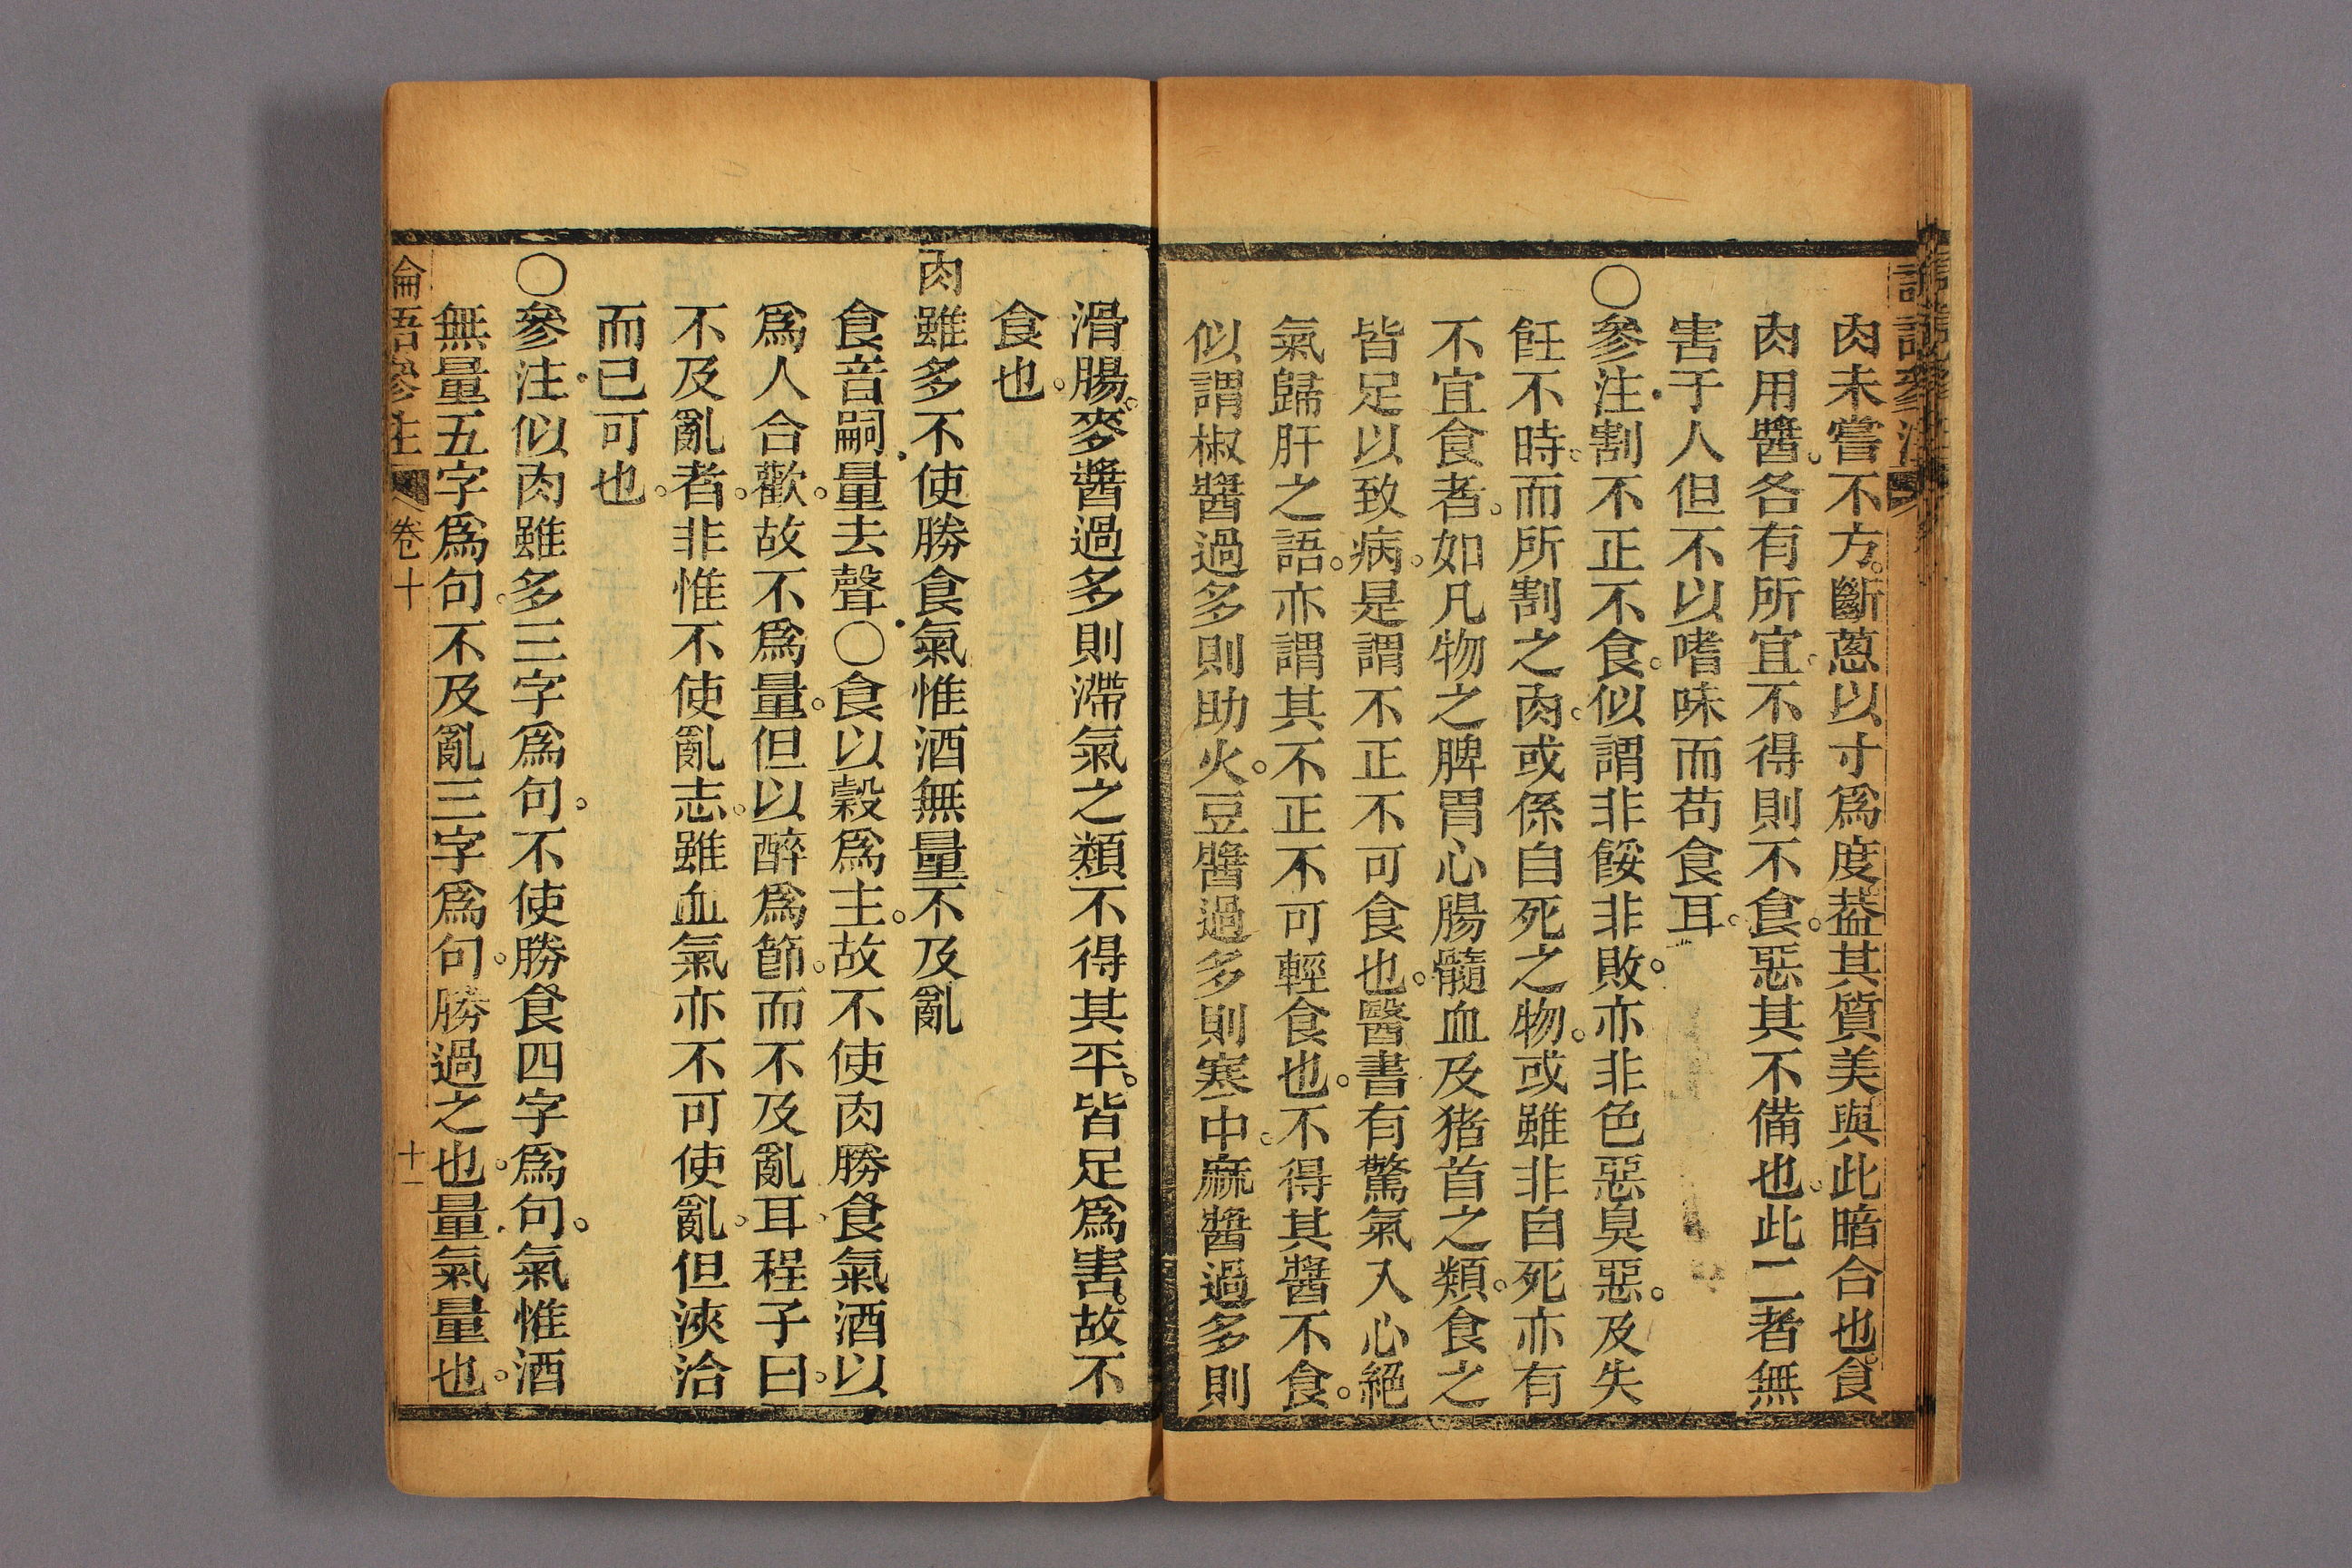 肉未嘗不方。斷蔥以寸爲度葢其質美與此暗合也。食
肉用醬。各有所宜。不得則不食。惡其不備也。此二者無
害于人但不以嗜味而苟食耳。
〇參注割不正不食。似謂非餒非敗。亦非色惡臭惡。及失
飪不時。而所割之肉。或係自死之物。或雖非自死亦有
不宜食者。如凡物之脾胃心腸髓血及猪首之類。食之
皆足以致病。是謂不正不可食也。醫書有驚氣入心絕
氣歸肝之語。亦謂其不正不可輕食也。不得其醬不食。
似謂椒醬過多則助火。豆醬過多則寒中。麻醬過多則
滑腸。麥醬過多則滯氣之類不得其平。皆足爲害。故不
食也。
肉雖多不使勝食氣惟酒無量不及亂
食音嗣量去聲〇食以穀爲主。故不使肉勝食氣酒以
爲人合歡。故不爲量。但以醉爲節。而不及亂耳。程子曰。
不及亂者。非惟不使亂志。雖血氣亦不可使亂。但浹洽
而已可也。
〇參注似肉雖多三字爲句。不使勝食四字爲句。氣惟酒
無量五字爲句。不及亂三字爲句。勝過之也。量氣量也。
論語參注 卷十 十一